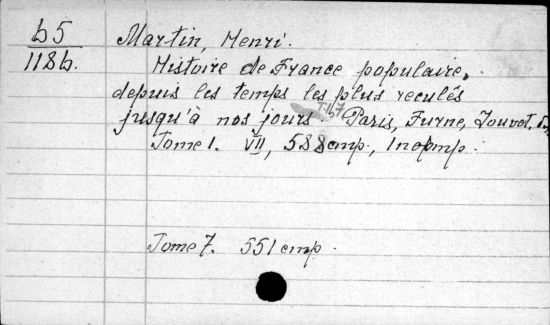 b5
118b.
Martin, Henri.
Histoire de France populaire,
depuis les temps les plus reculés
jusqu'à nos jours. T. 1, 7 Paris, Furne, Jouvet,
Tome 1. VII, 588 cmp., 1 порmp.
Tome 7. 551 cmp.